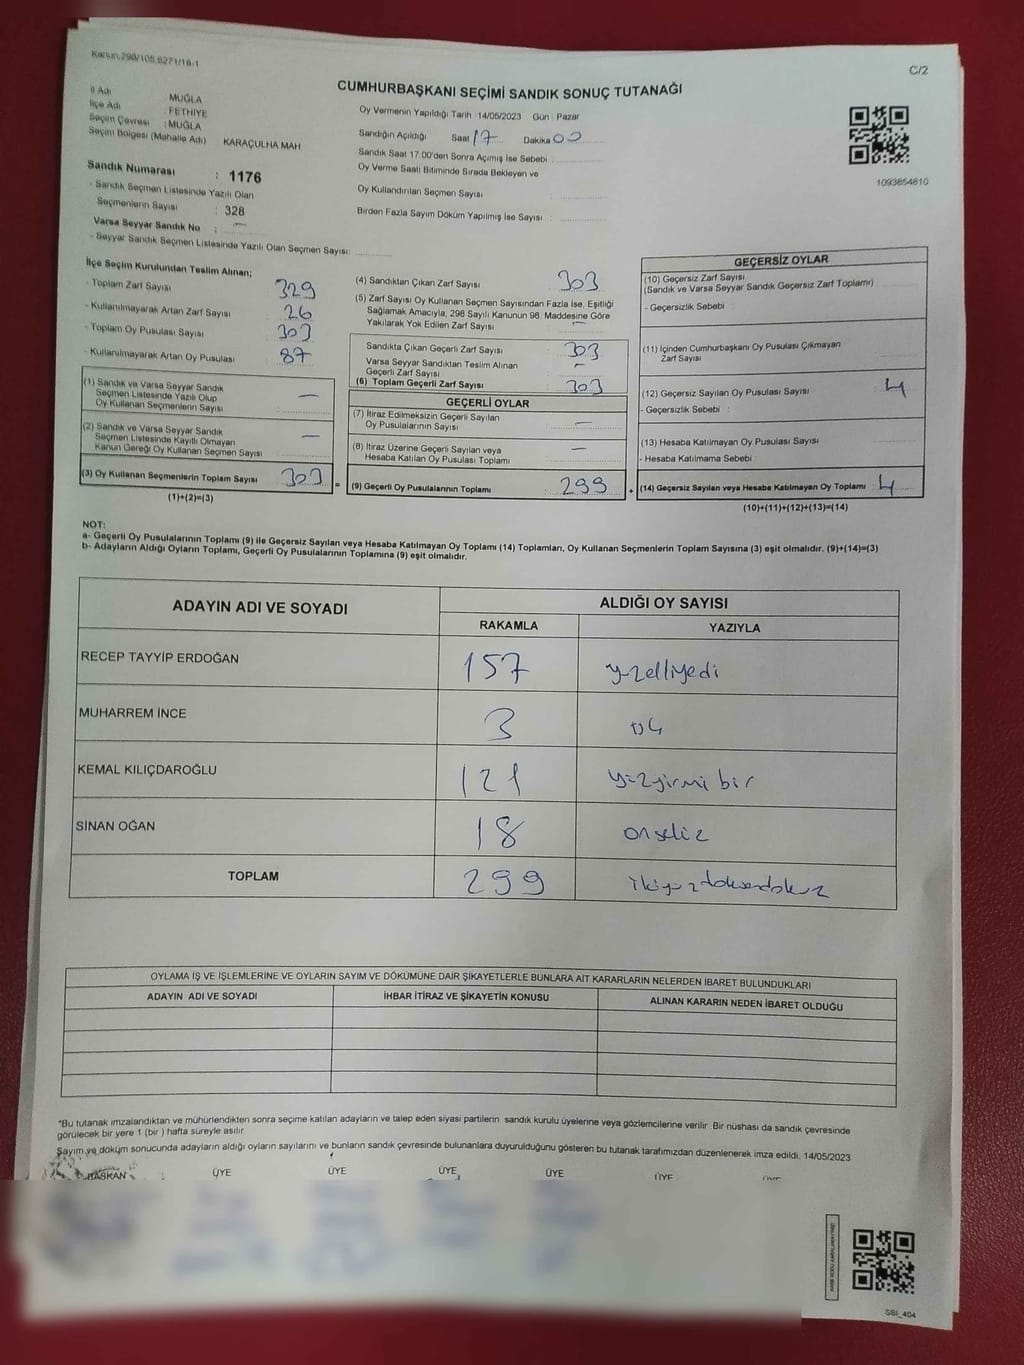 Kanun,298/105,6271/18-1
C/2
CUMHURBAŞKANI SEÇİMİ SANDIK SONUÇ TUTANAĞI
İl Adı : MUĞLA
İlçe Adı : FETHİYE
Seçim Çevresi : MUĞLA
Seçim Bölgesi (Mahalle Adı) KARAÇULHA MAH
Sandık Numarası : 1176
- Sandık Seçmen Listesinde Yazılı Olan
Seçmenlerin Sayısı : 328
Varsa Seyyar Sandık No : —
- Seyyar Sandık Seçmen Listesinde Yazılı Olan Seçmen Sayısı:
Oy Vermenin Yapıldığı Tarih : 14/05/2023 Gün : Pazar
Sandığın Açıldığı Saat 17 Dakika 00
Sandık Saat 17:00'den Sonra Açımış İse Sebebi :
Oy Verme Saati Bitiminde Sırada Bekleyen ve
Oy Kullandırılan Seçmen Sayısı :
Birden Fazla Sayım Döküm Yapılmış İse Sayısı :
1093854810
İlçe Seçim Kurulundan Teslim Alınan;
- Toplam Zarf Sayısı : 329
- Kullanılmayarak Artan Zarf Sayısı : 26
- Toplam Oy Pusulası Sayısı : 303
- Kullanılmayarak Artan Oy Pusulası : 87
(1) Sandık ve Varsa Seyyar Sandık
Seçmen Listesinde Yazılı Olup
Oy Kullanan Seçmenlerin Sayısı : —
(2) Sandık ve Varsa Seyyar Sandık
Seçmen Listesinde Kayıtlı Olmayan
Kanun Gereği Oy Kullanan Seçmen Sayısı : —
(3) Oy Kullanan Seçmenlerin Toplam Sayısı : 303
(1)+(2)=(3)
(4) Sandıktan Çıkan Zarf Sayısı : 303
(5) Zarf Sayısı Oy Kullanan Seçmen Sayısından Fazla İse, Eşitliği
Sağlamak Amacıyla, 298 Sayılı Kanunun 98. Maddesine Göre
Yakılarak Yok Edilen Zarf Sayısı : —
Sandıkta Çıkan Geçerli Zarf Sayısı : 303
Varsa Seyyar Sandıktan Teslim Alınan
Geçerli Zarf Sayısı : —
(6) Toplam Geçerli Zarf Sayısı : 303
GEÇERLİ OYLAR
(7) İtiraz Edilmeksizin Geçerli Sayılan
Oy Pusulalarının Sayısı : —
(8) İtiraz Üzerine Geçerli Sayılan veya
Hesaba Katılan Oy Pusulası Toplamı : —
= (9) Geçerli Oy Pusulalarının Toplamı : 299
GEÇERSİZ OYLAR
(10) Geçersiz Zarf Sayısı
(Sandık ve Varsa Seyyar Sandık Geçersiz Zarf Toplamı) :
- Geçersizlik Sebebi :
(11) İçinden Cumhurbaşkanı Oy Pusulası Çıkmayan
Zarf Sayısı :
(12) Geçersiz Sayılan Oy Pusulası Sayısı : 4
- Geçersizlik Sebebi :
(13) Hesaba Katılmayan Oy Pusulası Sayısı :
- Hesaba Katılmama Sebebi :
+ (14) Geçersiz Sayılan veya Hesaba Katılmayan Oy Toplamı : 4
(10)+(11)+(12)+(13)=(14)
NOT:
a- Geçerli Oy Pusulalarının Toplamı (9) ile Geçersiz Sayılan veya Hesaba Katılmayan Oy Toplamı (14) Toplamları, Oy Kullanan Seçmenlerin Toplam Sayısına (3) eşit olmalıdır. (9)+(14)=(3)
b- Adayların Aldığı Oyların Toplamı, Geçerli Oy Pusulalarının Toplamına (9) eşit olmalıdır.
ADAYIN ADI VE SOYADI ALDIĞI OY SAYISI
RAKAMLA YAZIYLA
RECEP TAYYİP ERDOĞAN 157 yüzelliyedi
MUHARREM İNCE 3 üç
KEMAL KILIÇDAROĞLU 121 yüzyirmi bir
SİNAN OĞAN 18 onsekiz
TOPLAM 299 ikiyüzdoksandokuz
OYLAMA İŞ VE İŞLEMLERİNE VE OYLARIN SAYIM VE DÖKÜMÜNE DAİR ŞİKAYETLERLE BUNLARA AİT KARARLARIN NELERDEN İBARET BULUNDUKLARI
ADAYIN ADI VE SOYADI İHBAR İTİRAZ VE ŞİKAYETİN KONUSU ALINAN KARARIN NEDEN İBARET OLDUĞU
*Bu tutanak imzalandıktan ve mühürlendikten sonra seçime katılan adayların ve talep eden siyasi partilerin sandık kurulu üyelerine veya gözlemcilerine verilir. Bir nüshası da sandık çevresinde
görülecek bir yere 1 (bir ) hafta süreyle asılır.
Sayım ve döküm sonucunda adayların aldığı oyların sayılarını ve bunların sandık çevresinde bulunanlara duyurulduğunu gösteren bu tutanak tarafımızdan düzenlenerek imza edildi. 14/05/2023
BAŞKAN ÜYE ÜYE ÜYE ÜYE ÜYE ÜYE
SBI_404